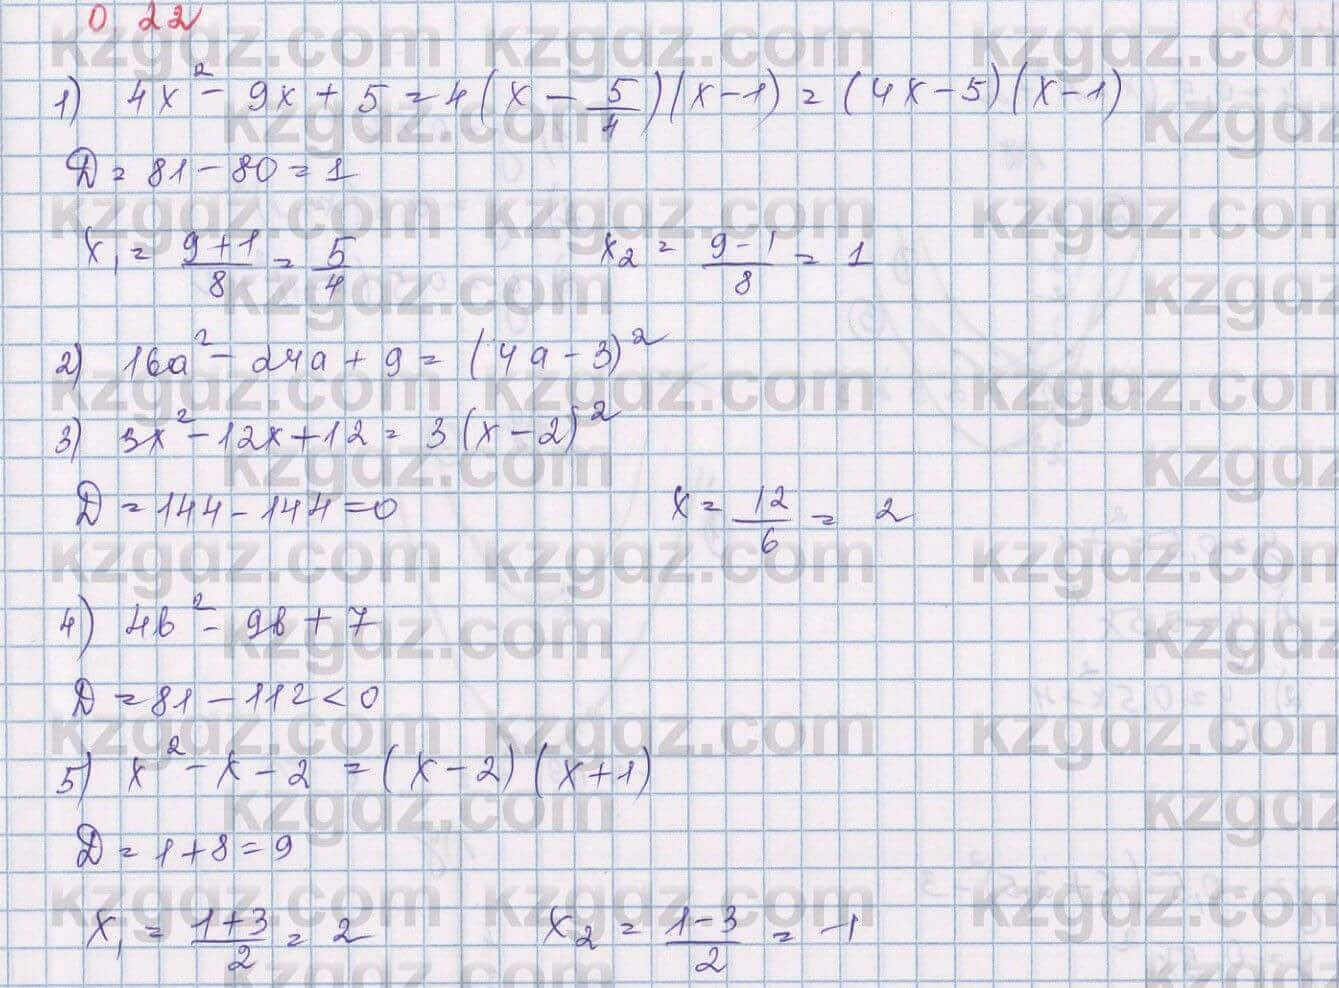 0.22
1) 4x² - 9x + 5 = 4(x - 5/4)(x - 1) = (4x - 5)(x - 1)
D = 81 - 80 = 1
x₁ = (9+1)/8 = 5/4 x₂ = (9-1)/8 = 1
2) 16a² - 24a + 9 = (4a - 3)²
3) 3x² - 12x + 12 = 3(x - 2)²
D = 144 - 144 = 0 x = 12/6 = 2
4) 4b² - 9b + 7
D = 81 - 112 < 0
5) x² - x - 2 = (x - 2)(x + 1)
D = 1 + 8 = 9
x₁ = (1+3)/2 = 2 x₂ = (1-3)/2 = -1
kzgdz.com